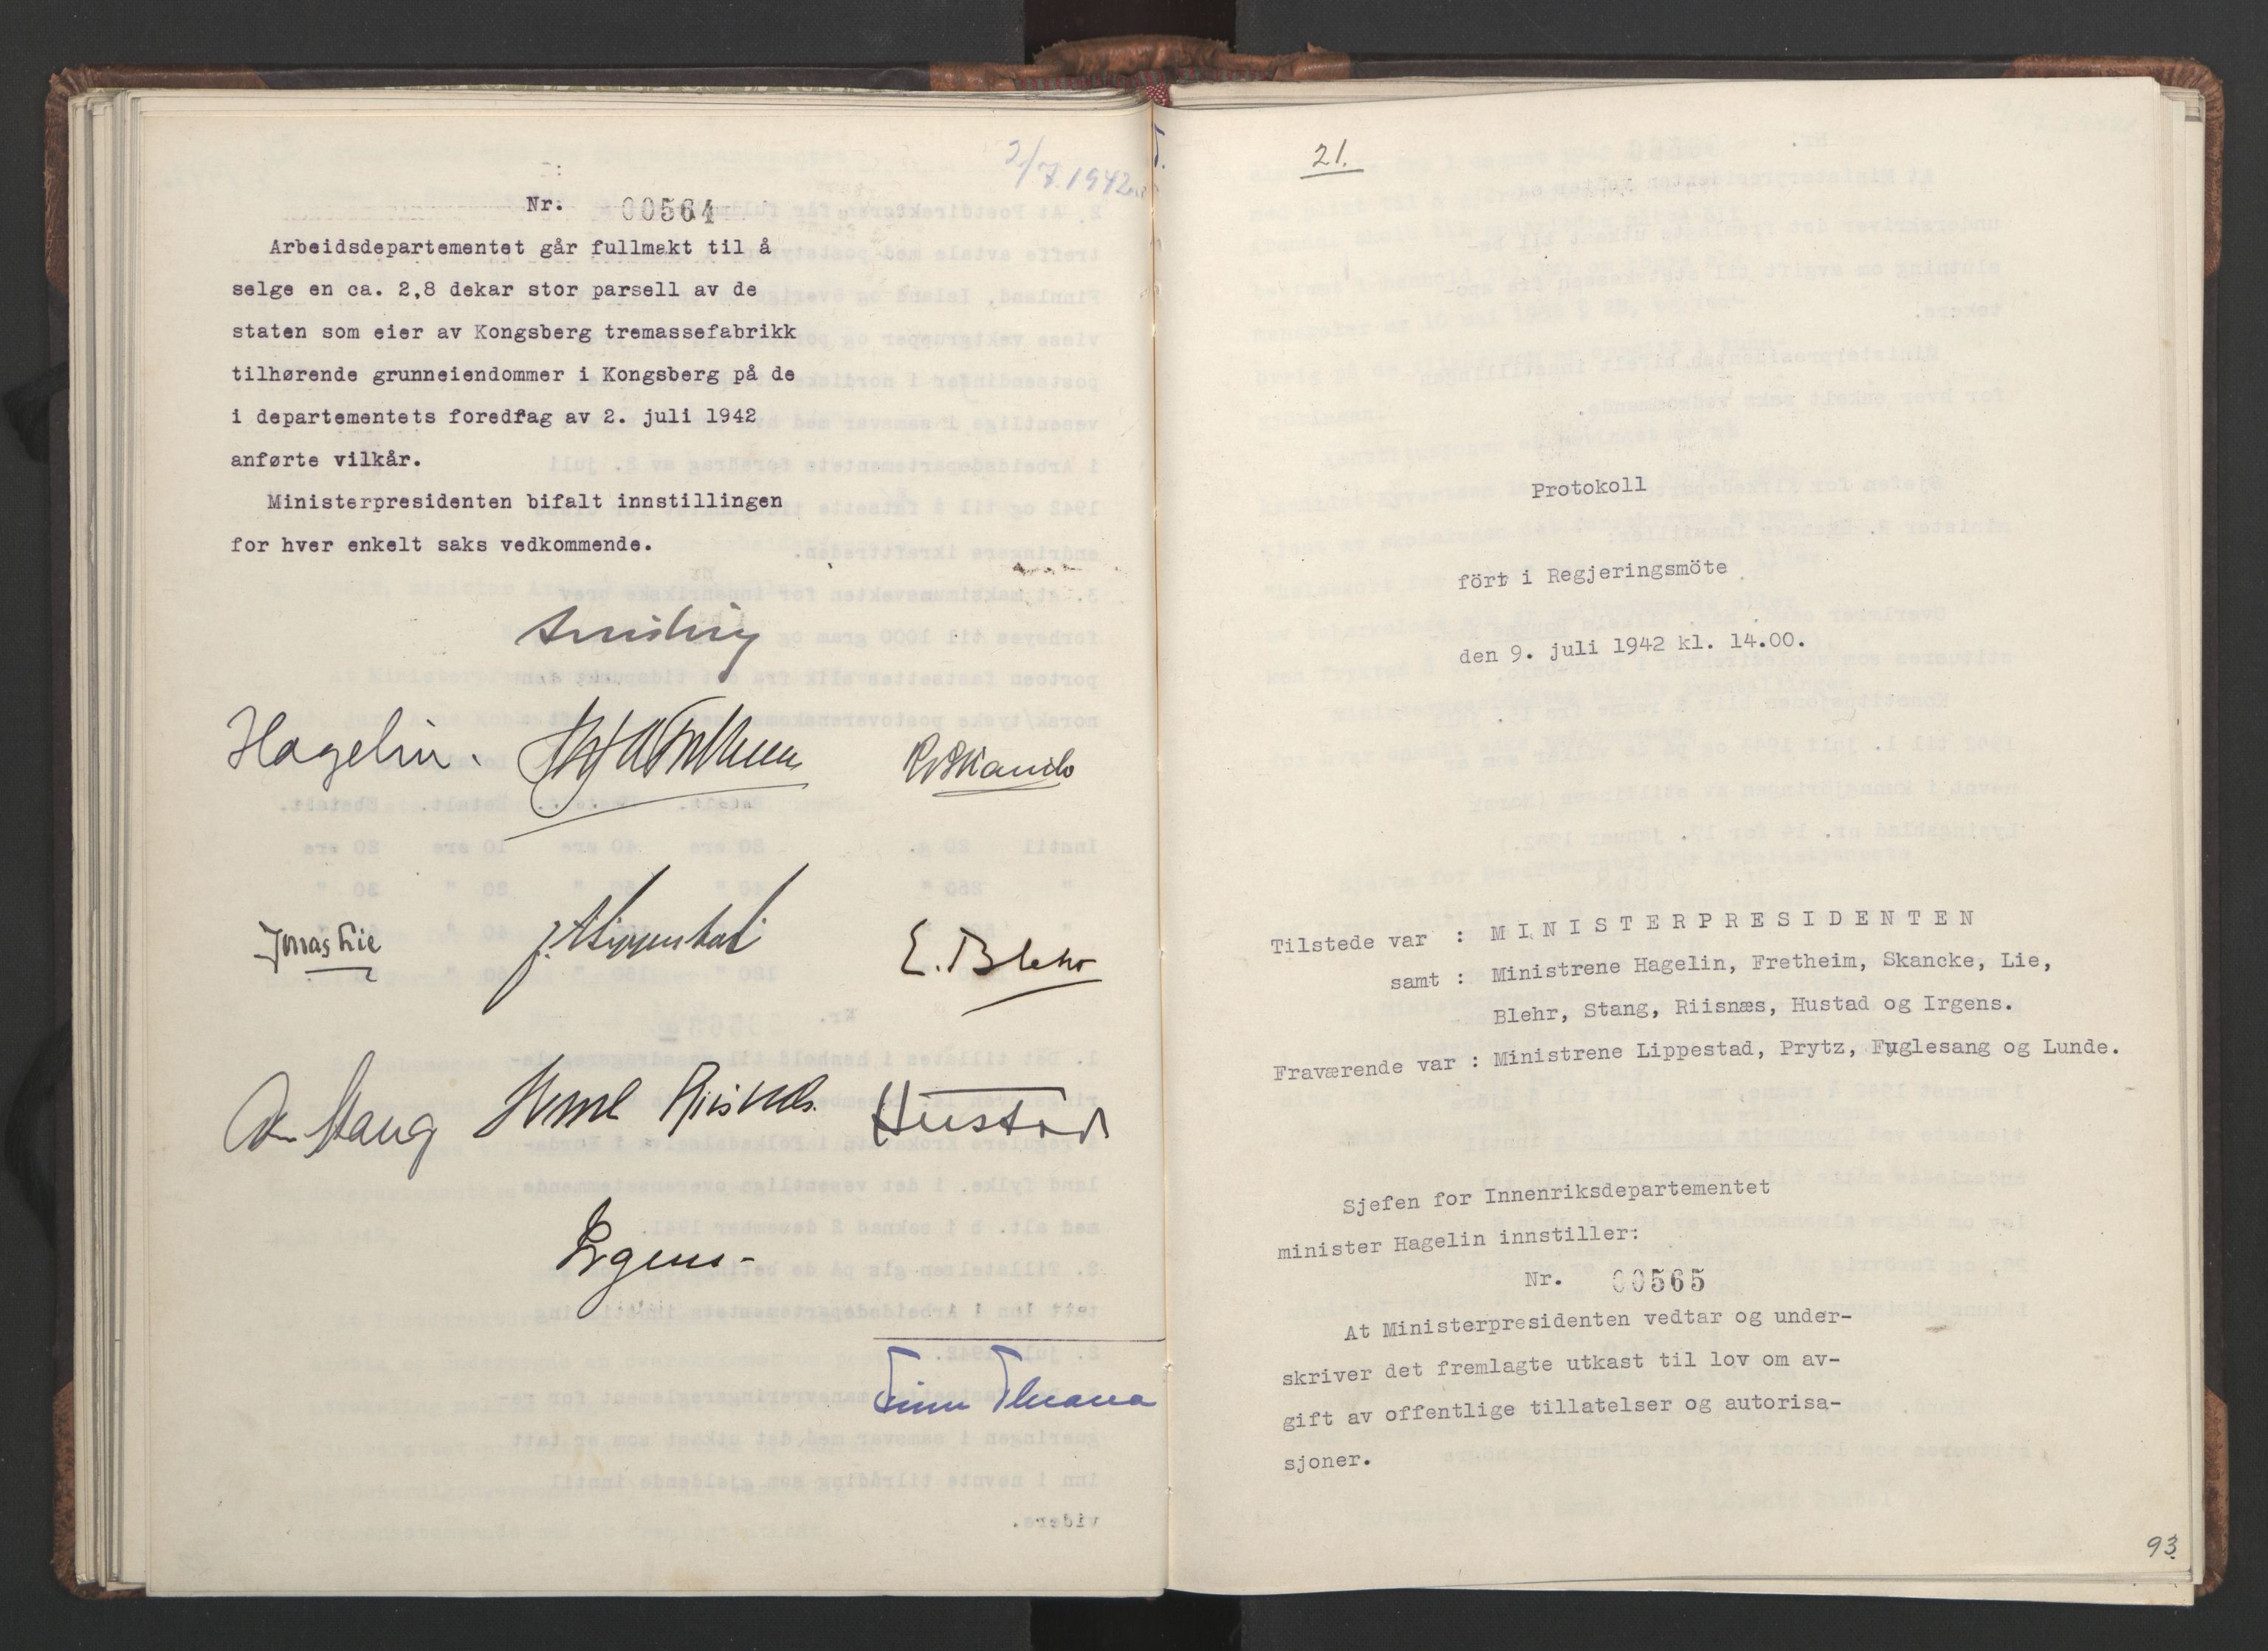 2/7.1942
Nr. 00564
Arbeidsdepartementet går fullmakt til å
selge en ca. 2,8 dekar stor parsell av de
staten som eier av Kongsberg tremassefabrikk
tilhørende grunneiendommer i Kongsberg på de
i departementets foredrag av 2. juli 1942
anførte vilkår.
Ministerpresidenten bifalt innstillingen
for hver enkelt saks vedkommende.
Hagelin.
R Skancke
Jonas Lie
J. Lippestad
E. Blehr
Stang
Riisnæs
Hustad
Irgens
Finn Thrana
21.
Protokoll
fört i Regjeringsmöte
den 9. juli 1942 kl. 14.00.
Tilstede var : MINISTERPRESIDENTEN
samt : Ministrene Hagelin, Fretheim, Skancke, Lie,
Blehr, Stang, Riisnæs, Hustad og Irgens.
Fraværende var : Ministrene Lippestad, Prytz, Fuglesang og Lunde.
Sjefen for Innenriksdepartementet
minister Hagelin innstiller:
Nr. 00565
At Ministerpresidenten vedtar og under-
skriver det fremlagte utkast til lov om av-
gift av offentlige tillatelser og autorisa-
sjoner.
93